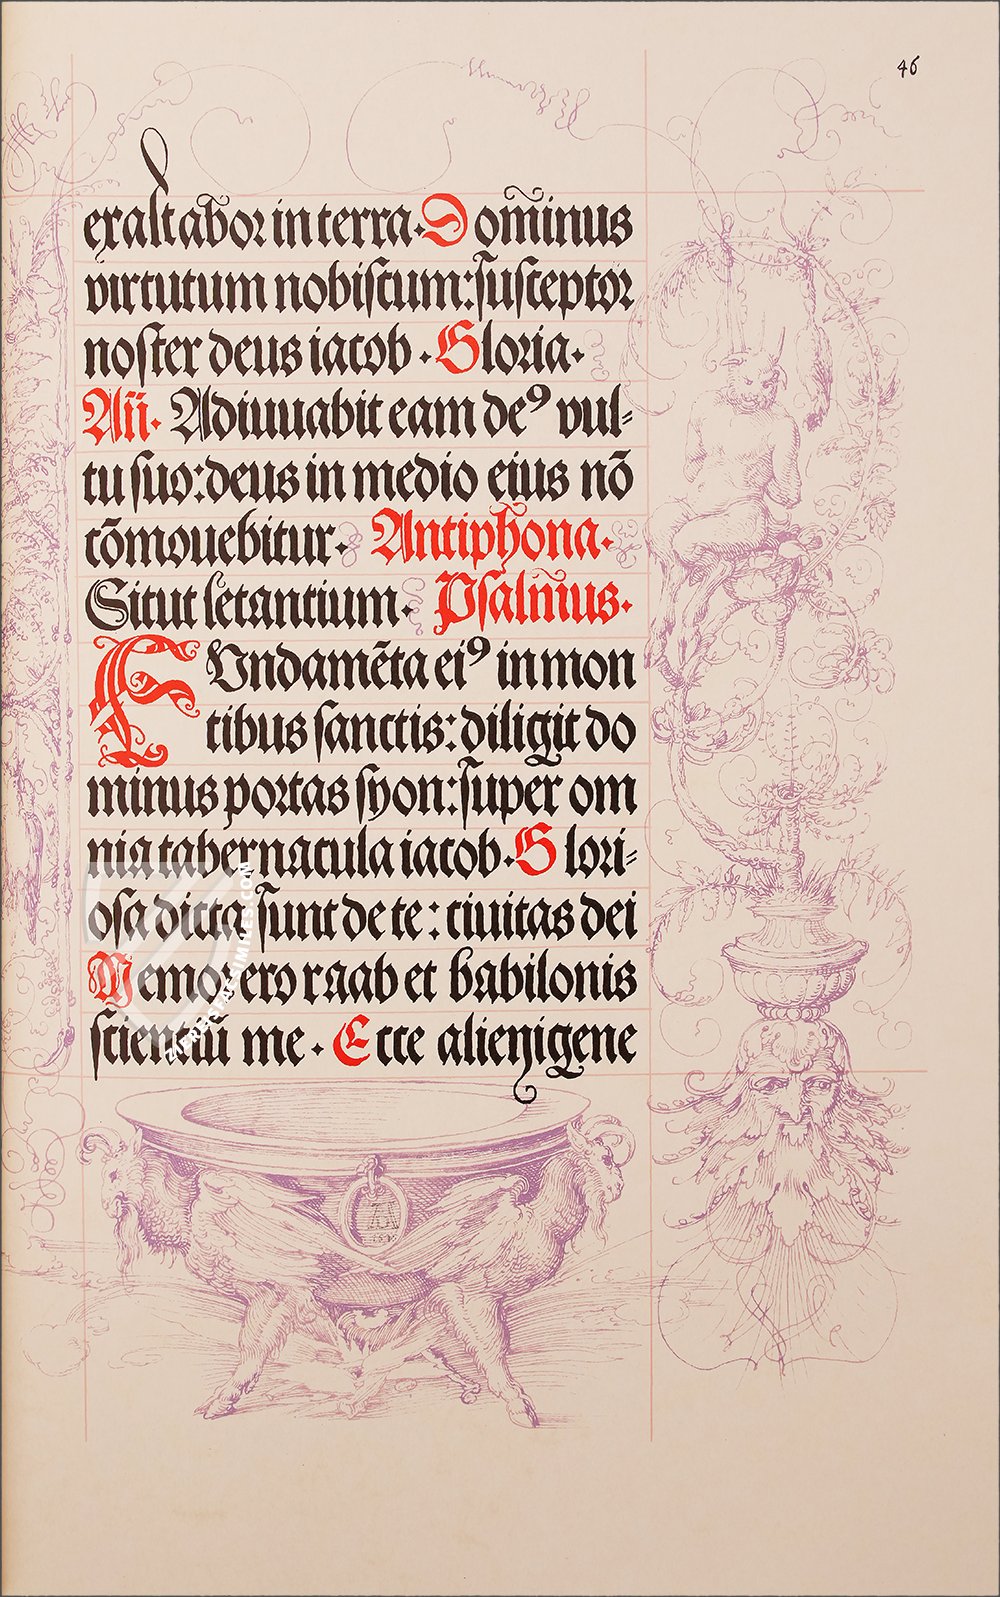 46
exaltabor in terra. Dom̃inus
virtutum nobiscum: susceptor
noster deus iacob. Gloria.
Añ. Adiuuabit eam deꝰ vul-
tu suo: deus in medio eius nō
cōmouebitur. Antiphona.
Sicut letantium. Psalm̃us.
FVndamēta eiꝰ in mon
tibus sanctis: diligit do
minus portas syon: super om
nia tabernacula iacob. Glori-
osa dicta sunt de te: ciuitas dei
Memor ero raab et babilonis
scientiū me. Ecce alienigene
AD
ZIEREIS FACSIMILES.COM